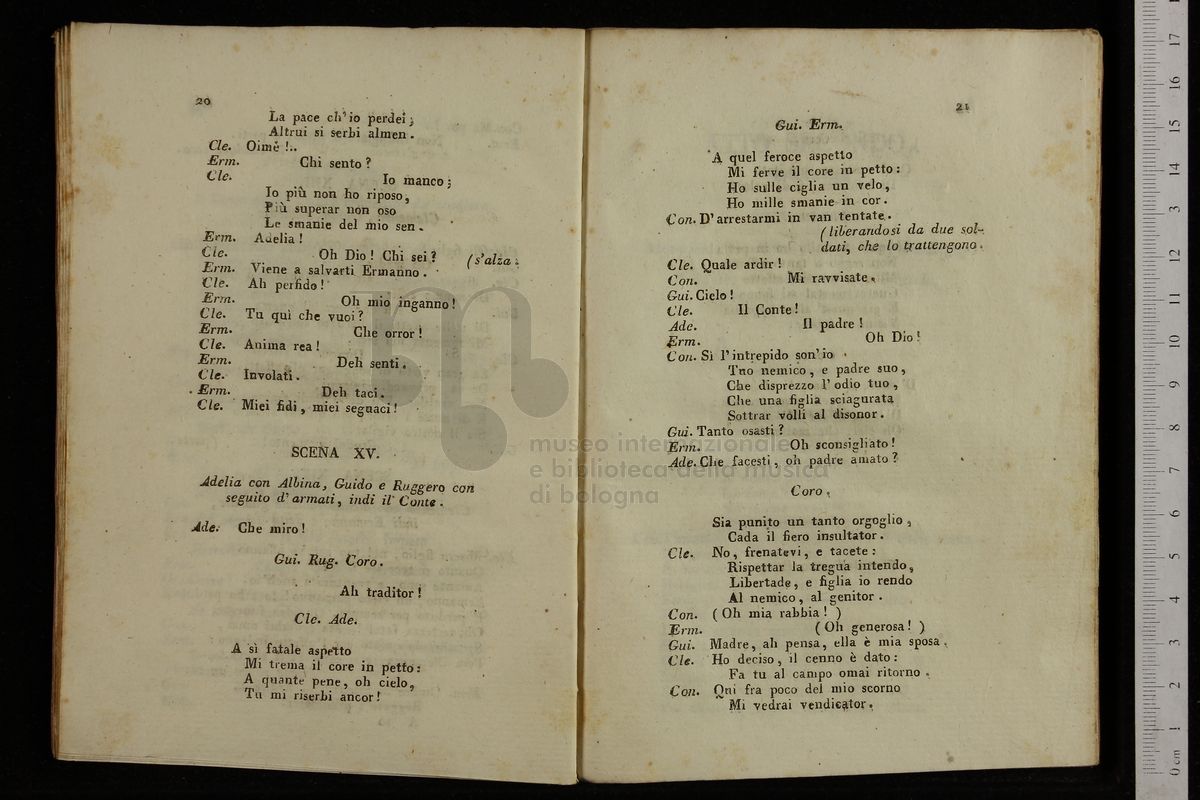 20
La pace ch' io perdei;
Altrui si serbi almen.
Cle. Oimè!..
Erm. Chi sento?
Cle. Io manco;
Io più non ho riposo,
Più superar non oso
Le smanie del mio sen.
Erm. Adelia!
Cle. Oh Dio! Chi sei? (s'alza.
Erm. Viene a salvarti Ermanno.
Cle. Ah perfido!
Erm. Oh mio inganno!
Cle. Tu quì che vuoi?
Erm. Che orror!
Cle. Anima rea!
Erm. Deh senti.
Cle. Involati.
Erm. Deh taci.
Cle. Miei fidi, miei seguaci!
SCENA XV.
Adelia con Albina, Guido e Ruggero con
seguito d' armati, indi il Conte.
Ade. Che miro!
Gui. Rug. Coro.
Ah traditor!
Cle. Ade.
A sì fatale aspetto
Mi trema il core in petto:
A quante pene, oh cielo,
Tu mi riserbi ancor!
21
Gui. Erm.
A quel feroce aspetto
Mi ferve il core in petto:
Ho sulle ciglia un velo,
Ho mille smanie in cor.
Con. D' arrestarmi in van tentate.
(liberandosi da due sol-
dati, che lo trattengono.
Cle. Quale ardir!
Con. Mi ravvisate.
Gui. Cielo!
Cle. Il Conte!
Ade. Il padre!
Erm. Oh Dio!
Con. Sì l' intrepido son' io
Tuo nemico, e padre suo,
Che disprezzo l' odio tuo,
Che una figlia sciagurata
Sottrar volli al disonor.
Gui. Tanto osasti?
Erm. Oh sconsigliato!
Ade. Che facesti, oh padre amato?
Coro.
Sia punito un tanto orgoglio,
Cada il fiero insultator.
Cle. No, frenatevi, e tacete:
Rispettar la tregua intendo,
Libertade, e figlia io rendo
Al nemico, al genitor.
Con. (Oh mia rabbia! )
Erm. (Oh generosa! )
Gui. Madre, ah pensa, ella è mia sposa.
Cle. Ho deciso, il cenno è dato:
Fa tu al campo omai ritorno.
Con. Qui fra poco del mio scorno
Mi vedrai vendicator.
museo internazionale
e biblioteca della musica
di bologna
0 cm 1 2 3 4 5 6 7 8 9 10 11 12 13 14 15 16 17